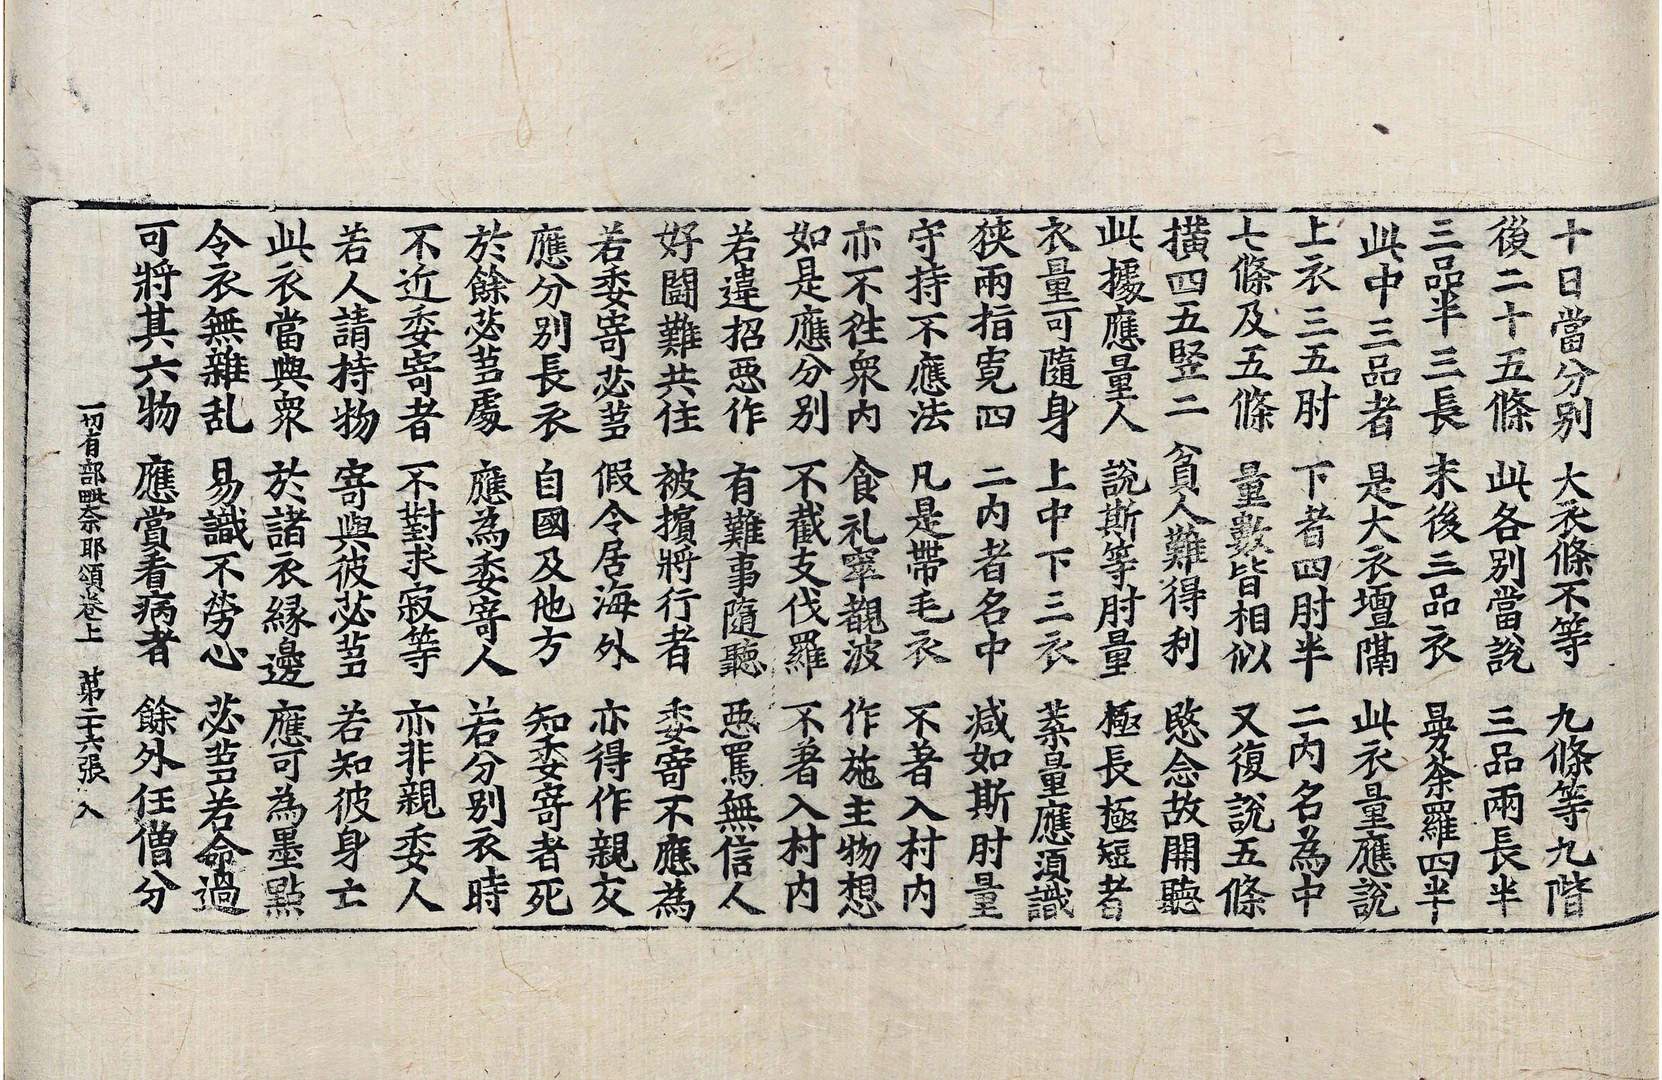 十日當分別　大衣條不等　九條等九階
後二十五條　此各別當說　三品兩長半
三品半三長　末後三品衣　曼荼羅四半
此中三品者　是大衣壇隔　此衣量應說
上衣三五肘　下者四肘半　二內名為中
七條及五條　量數皆相似　又復說五條
橫四五竪二　貧人難得利　愍念故開聽
此據應量人　說斯等肘量　極長極短者
衣量可隨身　上中下三衣　業量應須識
狹兩指寬四　二內者名中　減如斯肘量
守持不應法　凡是帶毛衣　不著入村內
亦不往衆內　食礼窣覩波　作施主物想
如是應分別　不截支伐羅　不著入村內
若違招惡作　有難事隨聽　惡罵無信人
好鬪難共住　被擯將行者　委寄不應為
若委寄苾芻　假令居海外　亦得作親友
應分別長衣　自國及他方　知委寄者死
於餘苾芻處　應為委寄人　若分別衣時
不近委寄者　不對求寂等　亦非親委人
若人請持物　寄與彼苾芻　若知彼身亡
此衣當與衆　於諸衣緣邊　應可為墨點
令衣無雜乱　易識不勞心　苾芻若命過
可將其六物　應賞看病者　餘外任僧分
一切有部毗奈耶頌卷上　第二十六張　入